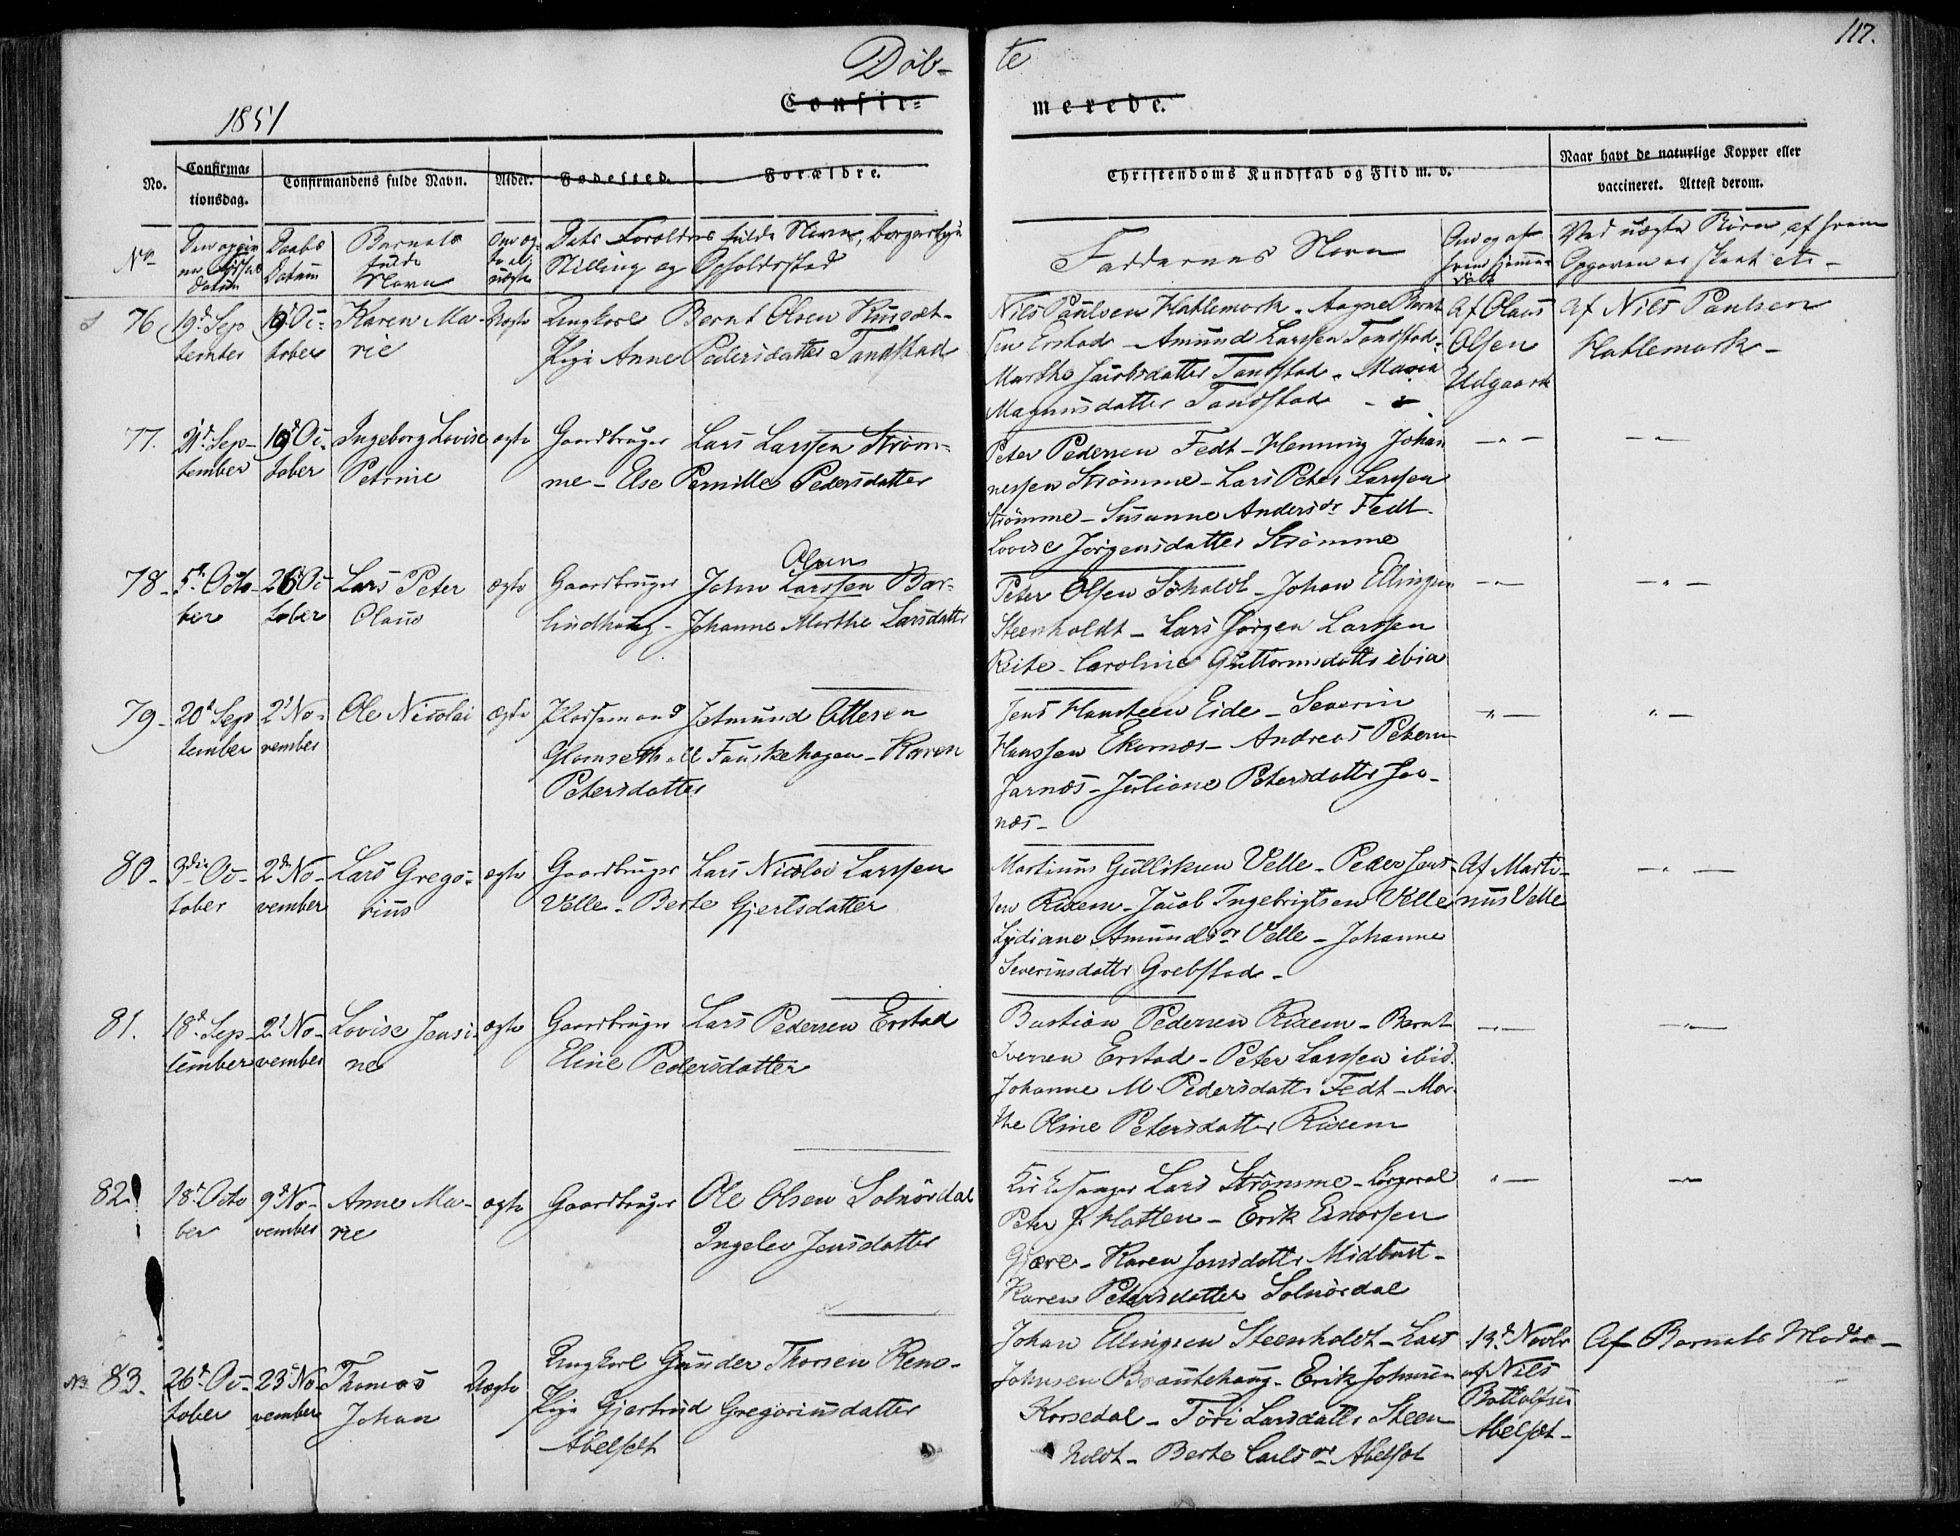 117.
Døb-
te
1851
Confir-
merede.
No.
Confirma-
tionsdag.
Confirmandens fulde Navn.
Alder.
Fødested.
Forældre.
Christendoms Kundskab og Flid m. v.
Naar havt de naturlige Kopper eller
vaccineret. Attest derom.
No
Daabs
Datum
Barnets
fulde
Navn
Dets Forældres fulde Navn, Borgerlige
Stilling og Opholdssted
Faddernes Navn
Om og af
hvem hjemme
døbt
Ved uægte Børn af hvem
Opgaven er skeet etc
76 19d Sep
tember
19d Oc-
tober
Karen Ma-
rie
Uægte
Ungkarl Bernt Olsen
Pige Anne Pedersdatter Tandstad
Nils Paulsen Hatlemark - Aagne Bernt
sen Erstad - Amund Larssen Tandstad -
Marthe Jacobsdatter Tandstad - Maria
Magnusdatter Tandstad
Af Olaus
Olsen
Uigaard
Af Nils Paulsen
Hatlemark -
77. 21d Sep-
tember
19d Oc-
tober
Ingeborg Lovise
Petrine
ægte
Gaardbruger Lars Larssen Strøm-
me - Else Pernille Pedersdatter
Peter Pedersen Fedt - Henning Johan
nessen Strømme - Lars Peter Larssen
Strømme - Susanne Andersdr Fedt
Lovise Jørgensdatter Strømme
78 - 5t Octo-
ber
26 Oc-
tober
Lars Peter
Olaus
ægte
Olsen
Gaardbruger John Larssen Bar-
lindhaug - Johanne Marthe Larsdatter
Peter Olsen Søholdt - Johan Ellingsen
Steenholdt - Lars Jørgen Larssen
Reite - Caroline Guttormsdatter ibid
79 - 20d Sep
tember
2d No-
vember
Ole Nicolai
ægte
Pladsemand Jetmund Ottesen
Glomseth all Fauskehagen - Karen
Petersdatter
Jens Hansteen Eide - Severin
Hanssen Ekornæs - Andreas Petersen
Jarnæs - Juliane Petersdatter Jar-
næs -
80 - 3die Oc-
tober
2den No-
vember
Lars Grego-
rius
ægte
Gaardbruger Lars Nicolai Larssen
Velle - Berte Gjertsdatter
Martinus Gulliksen Velle - Peder Jens-
sen Rixem - Jacob Ingebrigtsen Velle
Lydiane Amundsdr Velle - Johanne
Severinsdatter Grebstad -
Af Marti-
nus Velle
81. 18d Sep-
tember
2d No-
vember
Lovise Jensi-
ne
ægte
Gaardbruger Lars Pedersen Erstad
Eline Pedersdatter
Bastian Pedersen Rixem - Bernt
Iversen Erstad - Peter Larssen ibid.
Johanne M Pedersdatter Fedt - Mar-
the Oline Petersdatter Rixem
82 18d Octo
ber
9d No-
vember
Anne Ma-
rie
ægte
Gaardbruger Ole Olsen Solnørdal
Ingelev Jensdatter
Kirkesanger Lars Strømme - Corporal
Peter J. Hatten - Erik Einarsen
Gjære - Karen Jonsdatter Midtbust -
Karen Petersdatter Solnørdal
No 83. 26d Oc-
tober
23d No-
vember
Thomas
Johan
Uægte
Ungkarl Gunder Thorsen Reno-
Pige Gjertrud Gregoriusdatter
Abelsæt
Johan Ellingsen Steenholdt - Lars
Johnsen Brautehaug - Erik Johnsen
Korsedal - Tøri Larsdatter Steen
holdt - Berte Carlsdr Abelsæt
13d Novbr
af Nils
Bottolfsen
Abelsæt -
Af Barnets Moder -